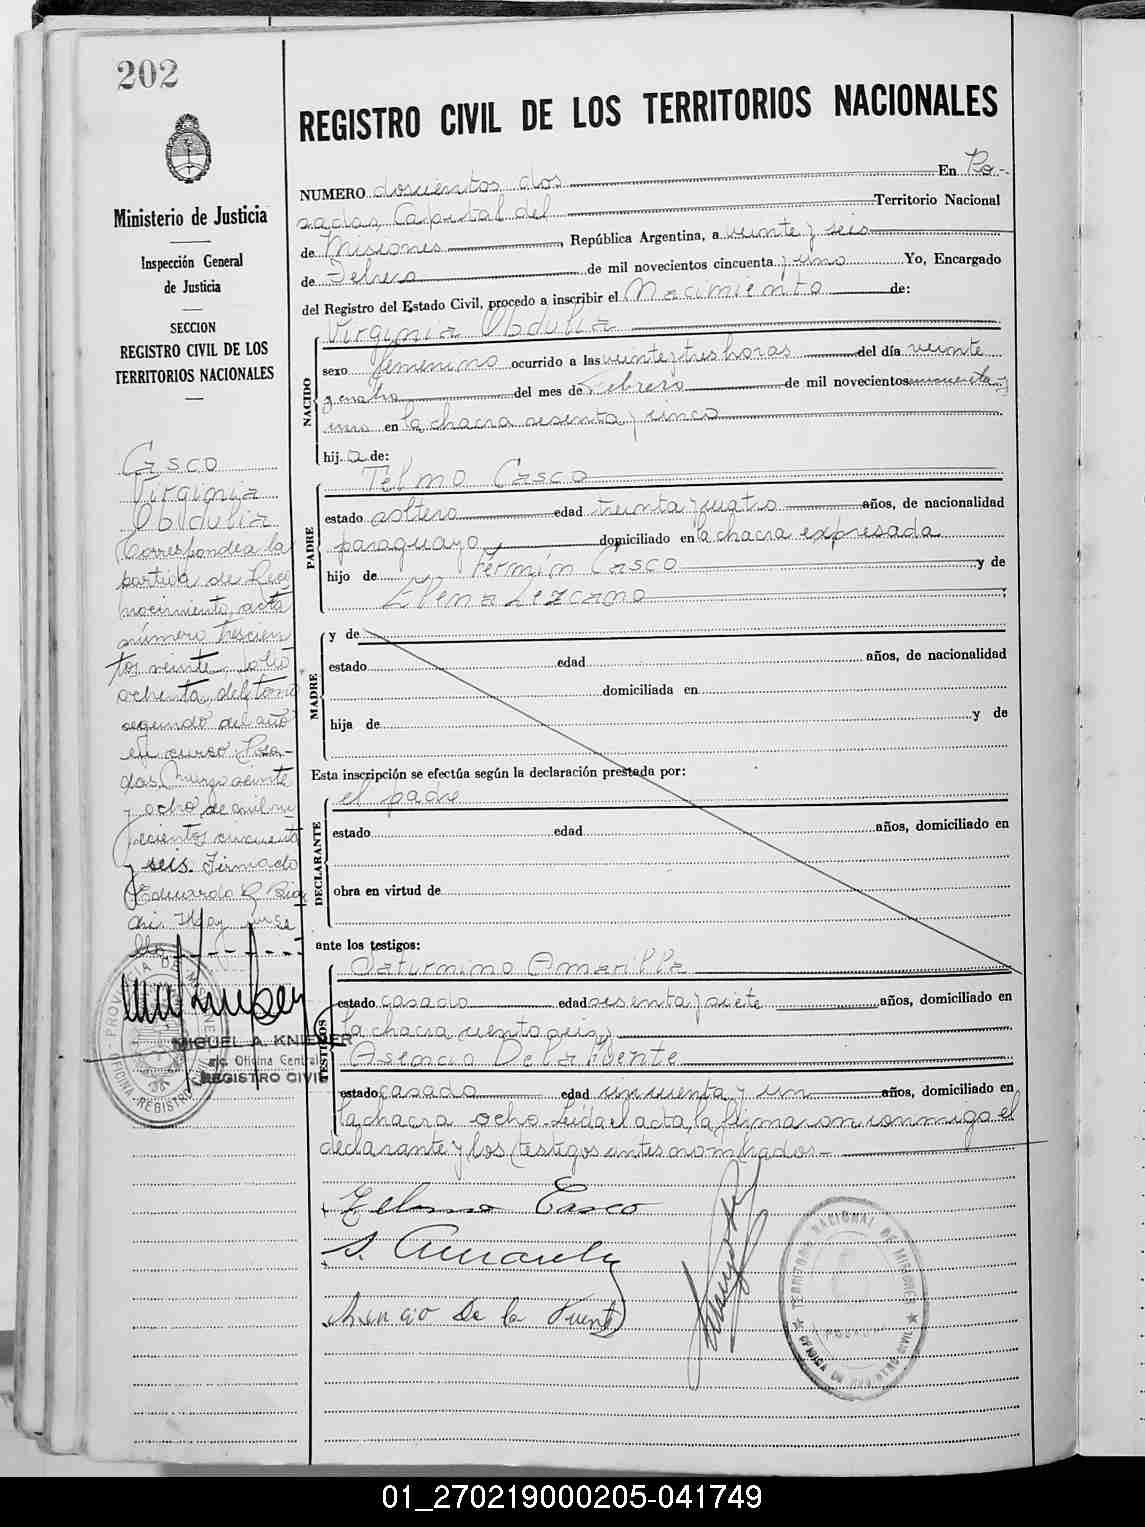 202
Ministerio de Justicia
Inspección General
de Justicia
SECCION
REGISTRO CIVIL DE LOS
TERRITORIOS NACIONALES
Casco
Virginia
Obdulia
Corresponde a la
partida de Reco
nocimiento, acta
número trescien
tos veinte, folio
ochenta del tomo
segundo del año
en curso. Posa-
das, Marzo veinte
y ocho de mil no
vecientos cincuenta
y seis. Firmado
Eduardo
Hay un se
llo
MIGUEL A. KNIEVER
a/c. Oficina Central
REGISTRO CIVIL
REGISTRO CIVIL DE LOS TERRITORIOS NACIONALES
NUMERO doscientos dos En Po-
sadas Capital del Territorio Nacional
de Misiones, República Argentina, a veinte y seis
de Febrero de mil novecientos cincuenta y uno Yo, Encargado
del Registro del Estado Civil, procedo a inscribir el Nacimiento de:
NACIDO
Virginia Obdulia
sexo femenino ocurrido a las veinte y tres horas del día veinte
y cuatro del mes de Febrero de mil novecientos cincuenta y
uno en la chacra sesenta y cinco
hija de:
PADRE
Telmo Casco
estado soltero edad treinta y cuatro años, de nacionalidad
paraguayo, domiciliado en la chacra expresada
hijo de Fermín Casco y de
Elena Lezcano ;
MADRE
y de
estado edad años, de nacionalidad
domiciliada en
hija de y de
Esta inscripción se efectúa según la declaración prestada por:
DECLARANTE
el padre
estado edad años, domiciliado en
obra en virtud de
ante los testigos:
TESTIGOS
Saturnino Amarilla
estado casado edad sesenta y siete años, domiciliado en
la chacra ciento quince y
Asencio De la Fuente
estado casado edad cincuenta y un años, domiciliado en
la chacra ocho. Leída el acta, la firmaron conmigo el
declarante y los testigos antes nombrados.-
Telmo Casco
S. Amarilla
Asencio De la Fuente
TERRITORIO NACIONAL DE MISIONES
OFICINA DE REGISTRO CIVIL
01_270219000205-041749